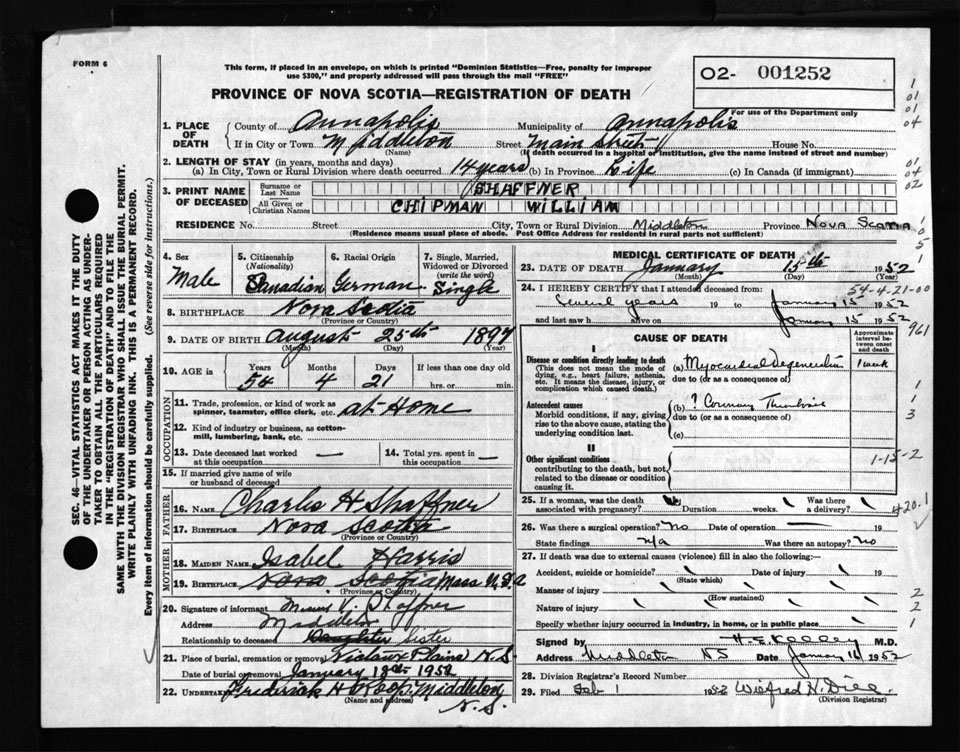 FORM 6
This form, if placed in an envelope, on which is printed "Dominion Statistics—Free, penalty for improper
use $300," and properly addressed will pass through the mail "FREE"
02- 001252
For use of the Department only
PROVINCE OF NOVA SCOTIA—REGISTRATION OF DEATH
1. PLACE OF DEATH
County of Annapolis Municipality of Annapolis
If in City or Town Middleton Street Main Street House No.
(Name) (If death occurred in a hospital or institution, give the name instead of street and number)
2. LENGTH OF STAY (in years, months and days)
(a) In City, Town or Rural Division where death occurred 14 years (b) In Province Life (c) In Canada (if immigrant)
3. PRINT NAME OF DECEASED
Surname or Last Name SHAFFNER
All Given or Christian Names CHIPMAN WILLIAM
RESIDENCE No. Street City, Town or Rural Division Middleton Province Nova Scotia
(Residence means usual place of abode. Post Office Address for residents in rural parts not sufficient)
4. Sex Male
5. Citizenship (Nationality) Canadian
6. Racial Origin German
7. Single, Married, Widowed or Divorced (write the word) Single
8. BIRTHPLACE Nova Scotia
(Province or Country)
9. DATE OF BIRTH August 25th 1897
(Month) (Day) (Year)
10. AGE in Years 54 Months 4 Days 21 If less than one day old hrs. or min.
OCCUPATION
11. Trade, profession, or kind of work as
spinner, teamster, office clerk, etc. at Home
12. Kind of industry or business, as cotton-
mill, lumbering, bank, etc.
13. Date deceased last worked at this occupation —
14. Total yrs. spent in this occupation —
15. If married give name of wife
or husband of deceased
FATHER
16. NAME Charles H Shaffner
17. BIRTHPLACE Nova Scotia
(Province or Country)
MOTHER
18. MAIDEN NAME Isabel Harris
19. BIRTHPLACE Nova Scotia Mass U.S.A
(Province or Country)
20. Signature of informant V. Shaffner
Address Middleton
Relationship to deceased Daughter Sister
21. Place of burial, cremation or removal Nictaux Plains N.S.
Date of burial or removal January 18th 1952
22. UNDERTAKER Frederick H Roop, Middleton
(Name and address) N.S.
MEDICAL CERTIFICATE OF DEATH
23. DATE OF DEATH January 15th 1952
(Month) (Day) (Year)
54-4-21-00
24. I HEREBY CERTIFY that I attended deceased from:
Several years 19 to January 15 1952
and last saw h alive on January 15 1952
CAUSE OF DEATH
Approximate interval between onset and death
I
Disease or condition directly leading to death
(This does not mean the mode of dying, e.g., heart failure, asthenia, etc. It means the disease, injury, or complication which caused death.)
(a) Myocardial Degeneration 1 week
due to (or as a consequence of)
Antecedent causes
Morbid conditions, if any, giving rise to the above cause, stating the underlying condition last.
(b) ? Coronary Thrombosis
due to (or as a consequence of)
(c)
II
Other significant conditions
contributing to the death, but not related to the disease or condition causing it.
1-15-2
25. If a woman, was the death associated with pregnancy? Duration weeks. Was there a delivery?
420.1
26. Was there surgical operation? No Date of operation — 19
State findings n/a Was there an autopsy? no
27. If death was due to external causes (violence) fill in also the following:—
Accident, suicide or homicide? Date of injury 19
(State which)
Manner of injury
(How sustained)
Nature of injury
Specify whether injury occurred in industry, in home, or in public place
Signed by H.E. Kelley M.D.
Address Middleton NS Date January 16 1952
28. Division Registrar's Record Number
29. Filed Feb 1 1952 Winifred H. Dill
(Division Registrar)
SEC. 46—VITAL STATISTICS ACT MAKES IT THE DUTY
OF THE UNDERTAKER OR PERSON ACTING AS UNDER-
TAKER TO OBTAIN ALL THE PARTICULARS REQUIRED
IN THE "REGISTRATION OF DEATH" AND TO FILE THE
SAME WITH THE DIVISION REGISTRAR WHO SHALL ISSUE THE BURIAL PERMIT.
WRITE PLAINLY WITH UNFADING INK. THIS IS A PERMANENT RECORD.
Every item of information should be carefully supplied. (See reverse side for instructions.)
1
01
01
04
01
04
02
0
5
961
1
1
3
2
2
1